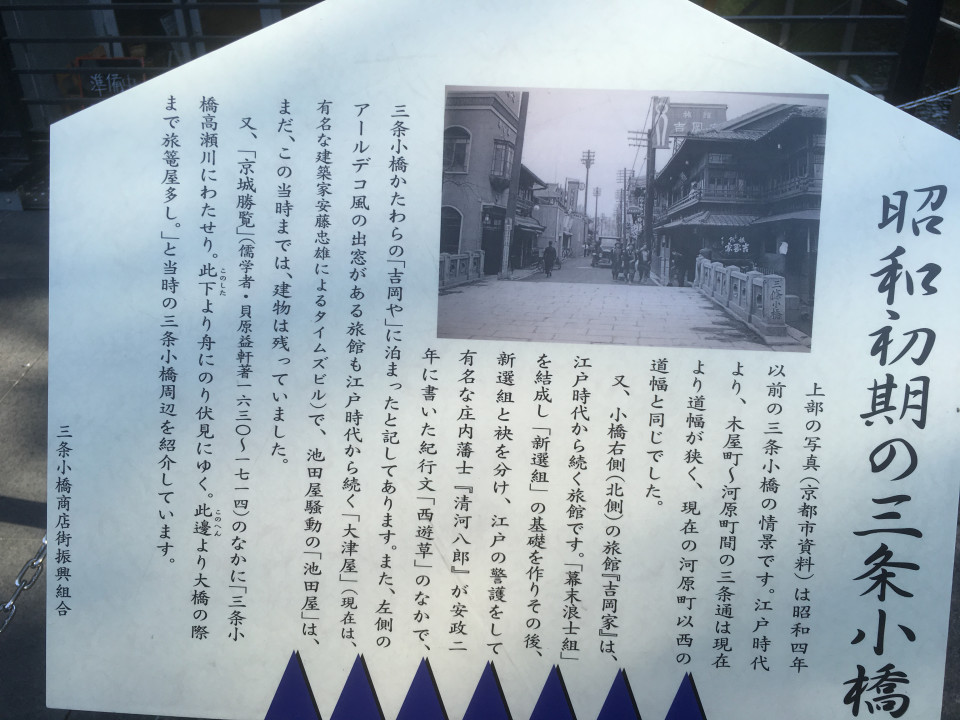 昭和初期の三条小橋
上部の写真(京都市資料)は昭和四年
以前の三条小橋の情景です。江戸時代
より、木屋町〜河原町間の三条通は現在
より道幅が狭く、現在の河原町以西の
道幅と同じでした。
又、小橋右側(北側)の旅館『吉岡家』は、
江戸時代から続く旅館です。「幕末浪士組」
を結成し「新選組」の基礎を作りその後、
新選組と袂を分け、江戸の警護をして
有名な庄内藩士『清河八郎』が安政二
年に書いた紀行文「西遊草」のなかで、
三条小橋かたわらの「吉岡や」に泊まったと記してあります。また、左側の
アールデコ風の出窓がある旅館も江戸時代から続く「大津屋」(現在は、
有名な建築家安藤忠雄によるタイムズビル)で、池田屋騒動の「池田屋」は、
まだ、この当時までは、建物は残っていました。
又、「京城勝覧」(儒学者・貝原益軒著一六三〇〜一七一四)のなかに「三条小
橋高瀬川にわたせり。此下より舟にのり伏見にゆく。此邊より大橋の際
このした
このへん
まで旅篭屋多し。」と当時の三条小橋周辺を紹介しています。
三条小橋商店街振興組合
三條小橋
吉岡
準備中